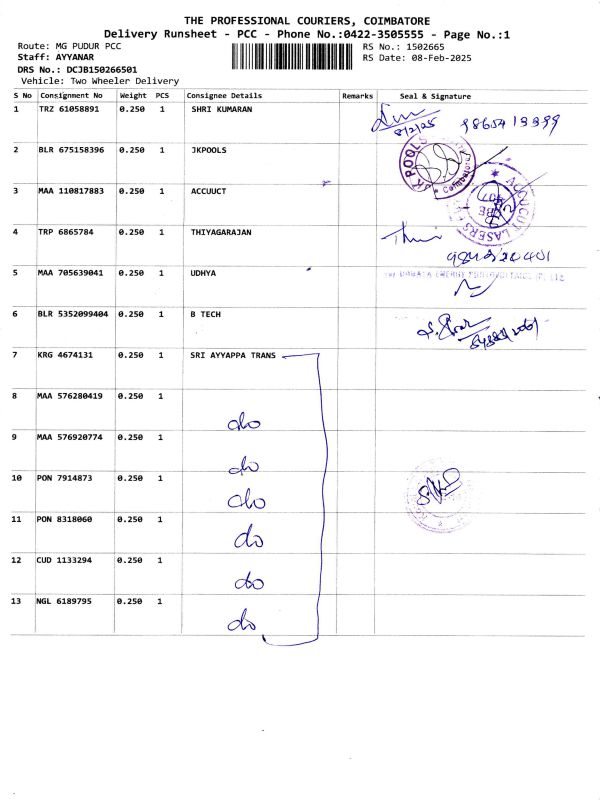 THE PROFESSIONAL COURIERS, COIMBATORE
Delivery Runsheet - PCC - Phone No.:0422-3505555 - Page No.:1
Route: MG PUDUR PCC
RS No.: 1502665
Staff: AYYANAR
RS Date: 08-Feb-2025
DRS No.: DCJB150266501
Vehicle: Two Wheeler Delivery
S No Consignment No Weight PCS Consignee Details Remarks Seal & Signature
1 TRZ 61058891 0.250 1 SHRI KUMARAN
8/2/25
2 BLR 675158396 0.250 1 JKPOOLS
POOLS Coimbatore
3 MAA 110817883 0.250 1 ACCUUCT
LASERS
4 TRP 6865784 0.250 1 THIYAGARAJAN
5 MAA 705639041 0.250 1 UDHYA
6 BLR 5352099404 0.250 1 B TECH
7 KRG 4674131 0.250 1 SRI AYYAPPA TRANS
8 MAA 576280419 0.250 1
do
9 MAA 576920774 0.250 1
do
10 PON 7914873 0.250 1
do
11 PON 8318060 0.250 1
do
12 CUD 1133294 0.250 1
do
13 NGL 6189795 0.250 1
do